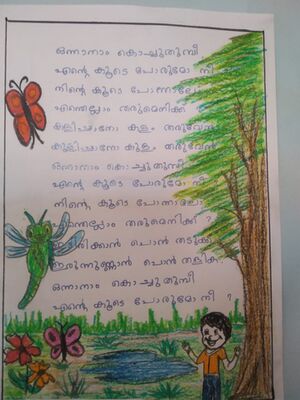 ഒന്നാനാം കൊച്ചുതുമ്പീ
എന്റെ കൂടെ പോരുമോ നീ
നിന്റെ കൂടെ പോന്നാലോ
എന്തെല്ലാം തരുമെനിക്ക് ?
കളിപ്പാനോ കളം തരുവേൻ
കുളിപ്പാനോ കുളം തരുവേൻ
ഒന്നാനാം കൊച്ചുതുമ്പീ
എന്റെ കൂടെ പോരുമോ നീ
നിന്റെ കൂടെ പോന്നാലോ
എന്തെല്ലാം തരുമെനിക്ക് ?
ഇരിക്കാൻ പൊൻ തടുക്ക്
ഇരുന്നുണ്ണാൻ പൊൻ തളിക
ഒന്നാനാം കൊച്ചുതുമ്പീ
എന്റെ കൂടെ പോരുമോ നീ ?